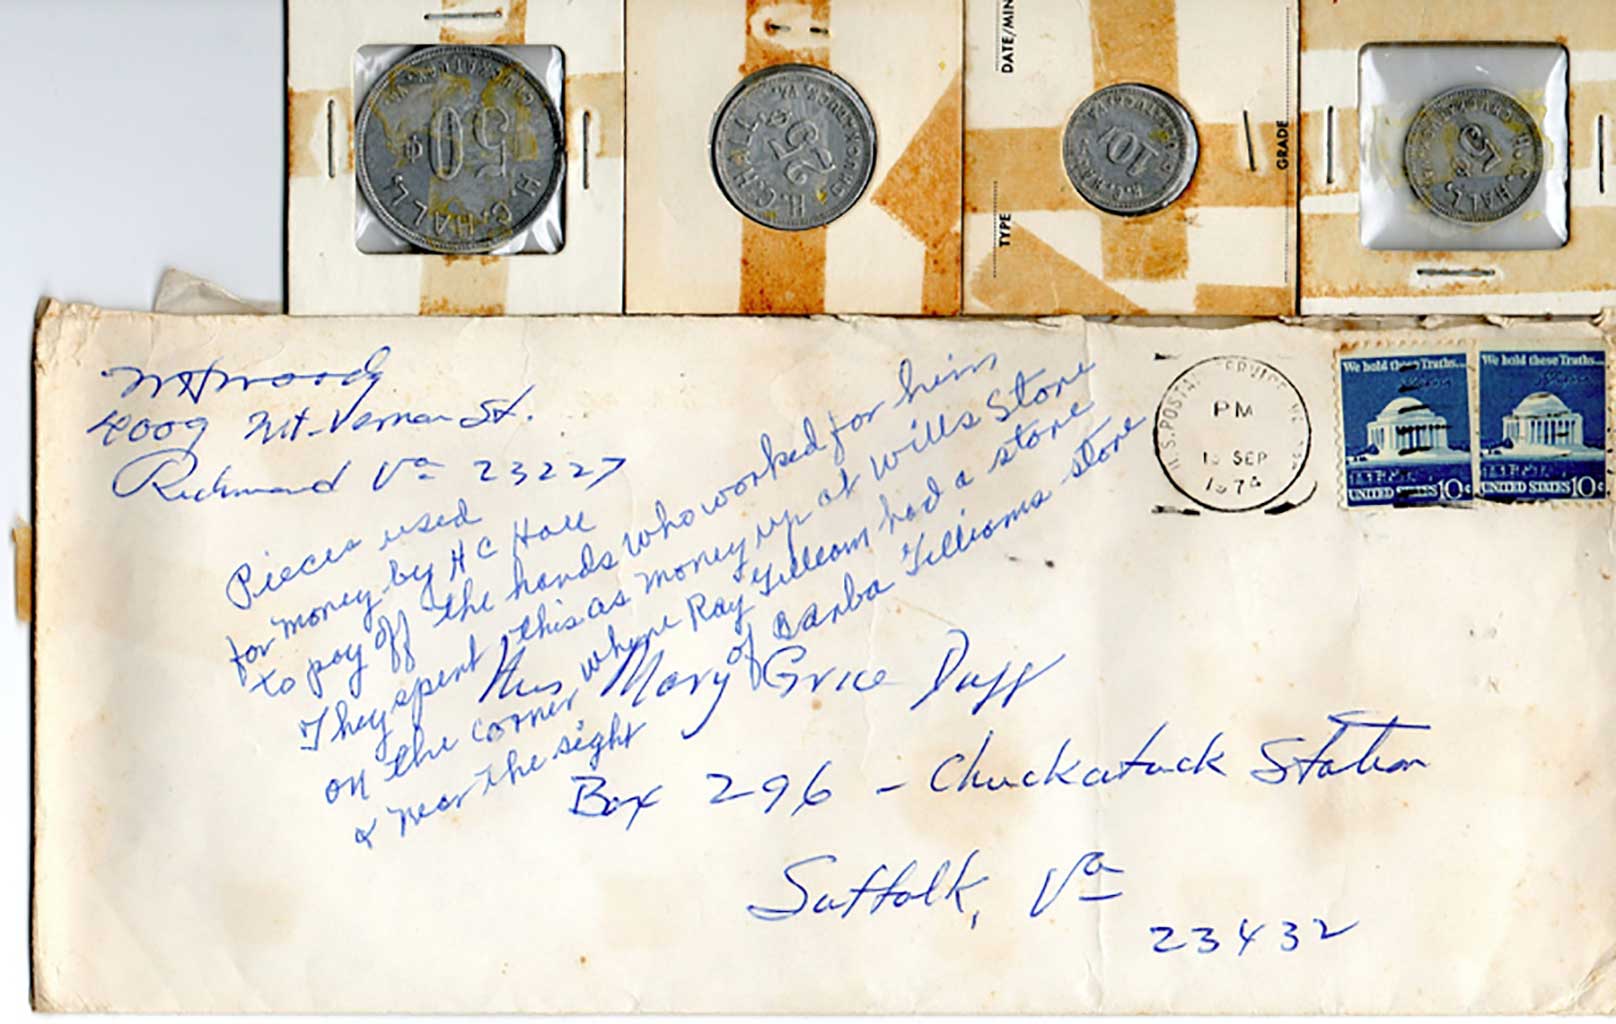 H. C. HALL.
$ 50
H. C. HALL.
$ 25
CHUCKATUCK, VA.
10
DATE/MIN
TYPE
GRADE
H. C. HALL.
5
4009 Mt. Vernon St.
Richmond Va 23227
Pieces used
for money by H C Hall
to pay off the hands who worked for him
They spent this as money up at Wills Store
on the corner, where Ray Gilliam had a store
& near the sight of Barba Gilliams store
Mrs Mary Grice Duff
Box 296 - Chuckatuck Station
Suffolk, Va
23432
U.S. POSTAL SERVICE
PM
SEP
1974
We hold these Truths...
UNITED STATES 10c
We hold these Truths...
UNITED STATES 10c